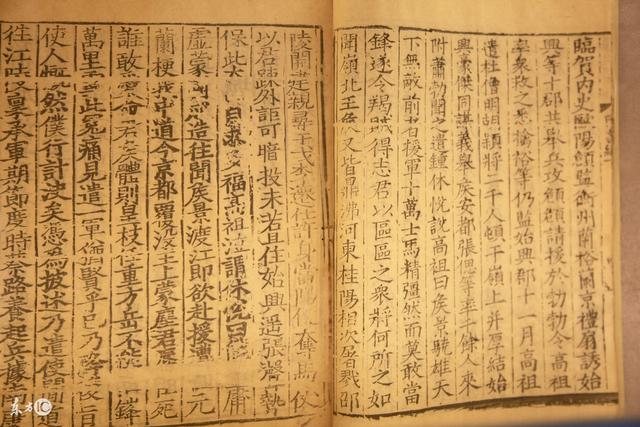 臨賀內史歐陽頠監衡州蘭裕蘭京禮扇誘始
興等十郡共舉兵攻頠頠請援於勃勃令高祖
率衆救之悉擒裕等仍監始興郡十一月高祖
遣杜僧明胡穎將二千人頓于嶺上并厚結始
興豪傑同謀義舉侯安都張偲等率千餘人來
附蕭勃聞之遣鍾休悅說高祖曰侯景驍雄天
下無敵前者援軍十萬士馬精彊然而莫敢當
鋒遂令羯賊得志君以區區之衆將何所之如
聞嶺北王侯又皆鼎沸河東桂陽相次屠戮邵
陵開建親尋干戈李遷仕許身當陽便奪馬仗
以君疎外詎可暗投未若且住始興遙張聲勢
保此太山自求多福高祖泣謂休悅曰庸
虛蒙國成造往聞侯景渡江即欲赴援遭元
蘭梗我中道今京都覆沒主上蒙塵君辱臣死
誰敢愛命君侯體則皇枝任重方岳不能鋒
萬里雪此冤痛見遣一軍猶賢乎已乃降後旨
使人慨然僕行計決矣憑為披述乃遣使間道
往江陵稟承軍期節度時蔡路養起兵據南
东方IC